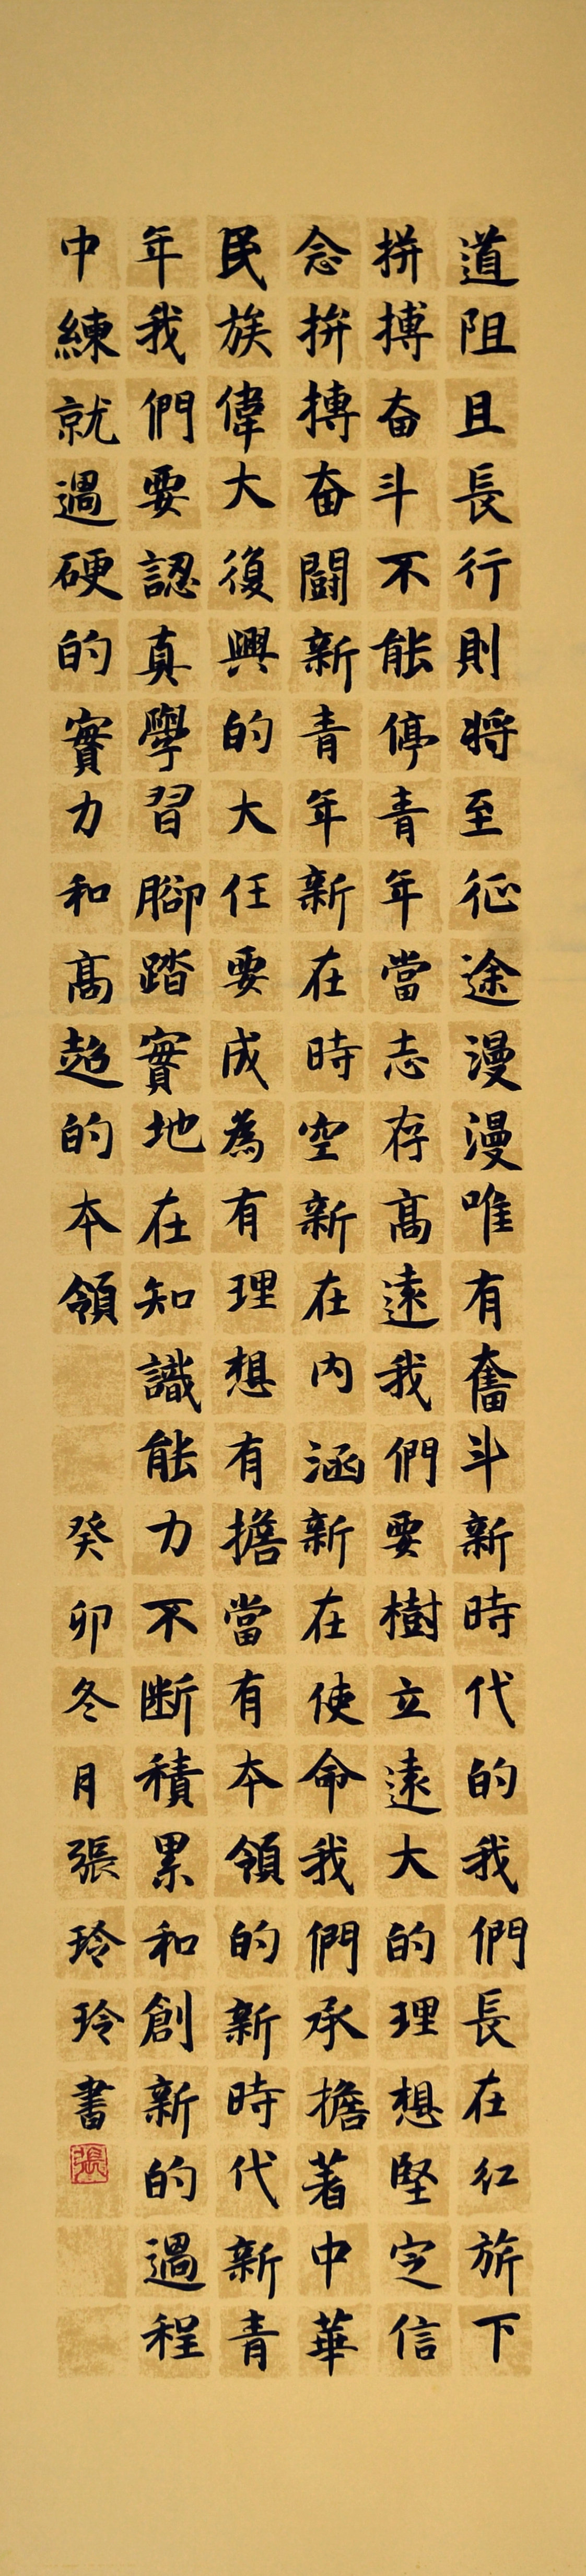 道阻且長行則將至征途漫漫唯有奮斗新時代的我們長在紅旂下
拼搏奋斗不能停青年當志存高遠我們要樹立遠大的理想堅定信
念拚摶奋鬪新青年新在時空新在内涵新在使命我們承擔著中華
民族偉大復興的大任要成為有理想有擔當有本領的新時代新青
年我們要認真學習腳踏實地在知識能力不断積累和創新的過程
中練就過硬的實力和高超的本領 癸卯冬月張玲玲書
張